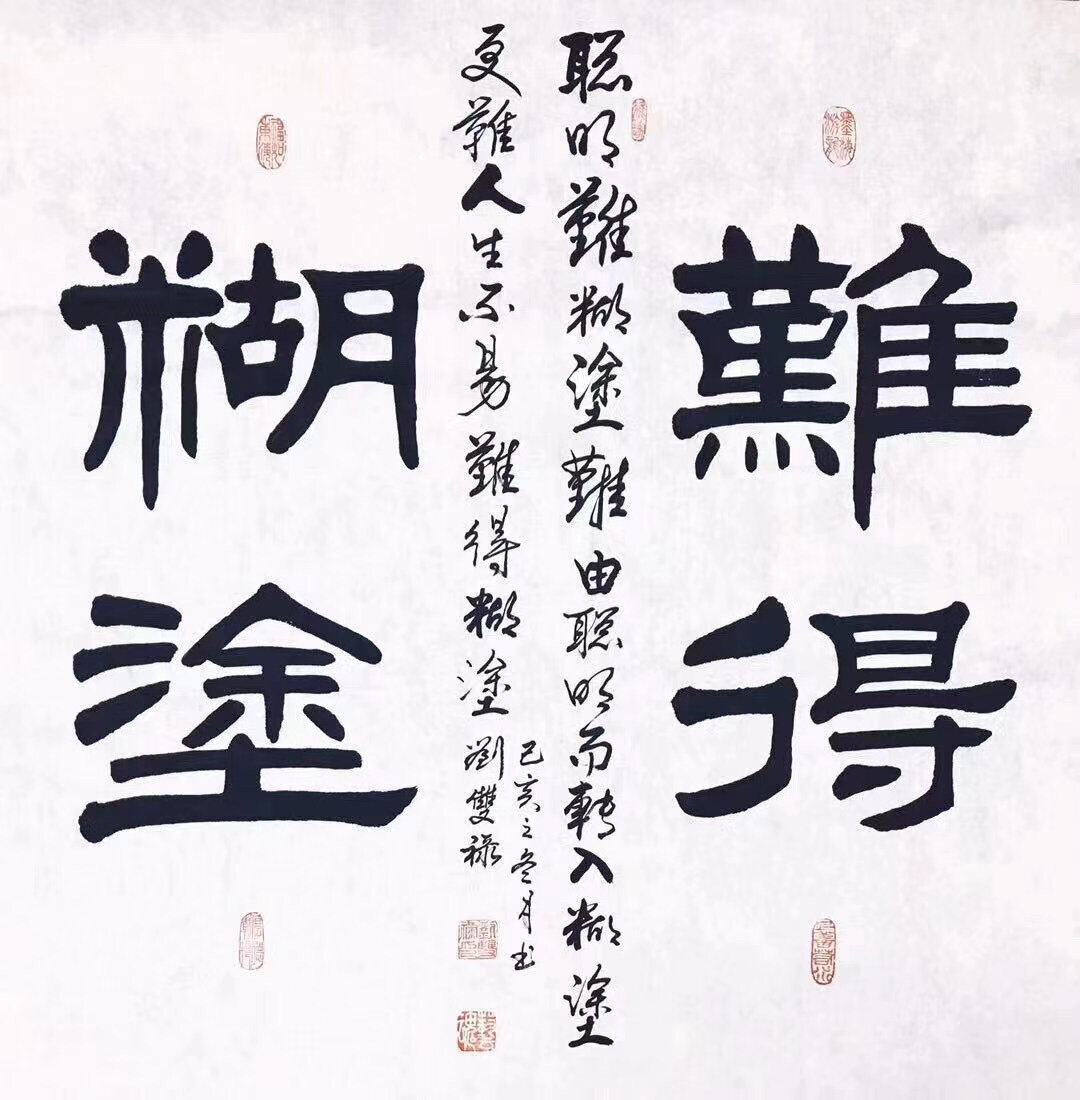 難得
聪明難糊塗難由聪明而轉入糊塗
更難人生不易難得糊塗
己亥之冬月书
劉雙祿
糊塗